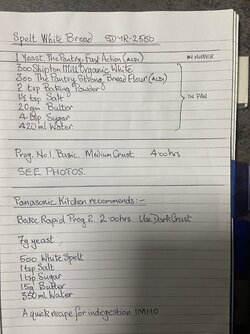 Spelt White Bread SD-YR-2550
1 Yeast The Pantry Fast Action (ALDI) IN HOPPER
300 Shipton Mill Organic White
300 The Pantry Strong Bread Flour (ALDI)
2 tsp Baking Powder
1½ tsp Salt IN PAN
20gm Butter
4 tsp Sugar
420 ml Water
Prog. No.1. Basic. Medium Crust 4:00hrs
SEE PHOTOS.
Panasonic Kitchen recommends:-
Bake Rapid Prog 2 2:00hrs Use Dark Crust
7g yeast
500 White Spelt
1 tsp Salt
1 tsp Sugar
15g Butter
350ml Water
A quick recipe for indigestion IMHO